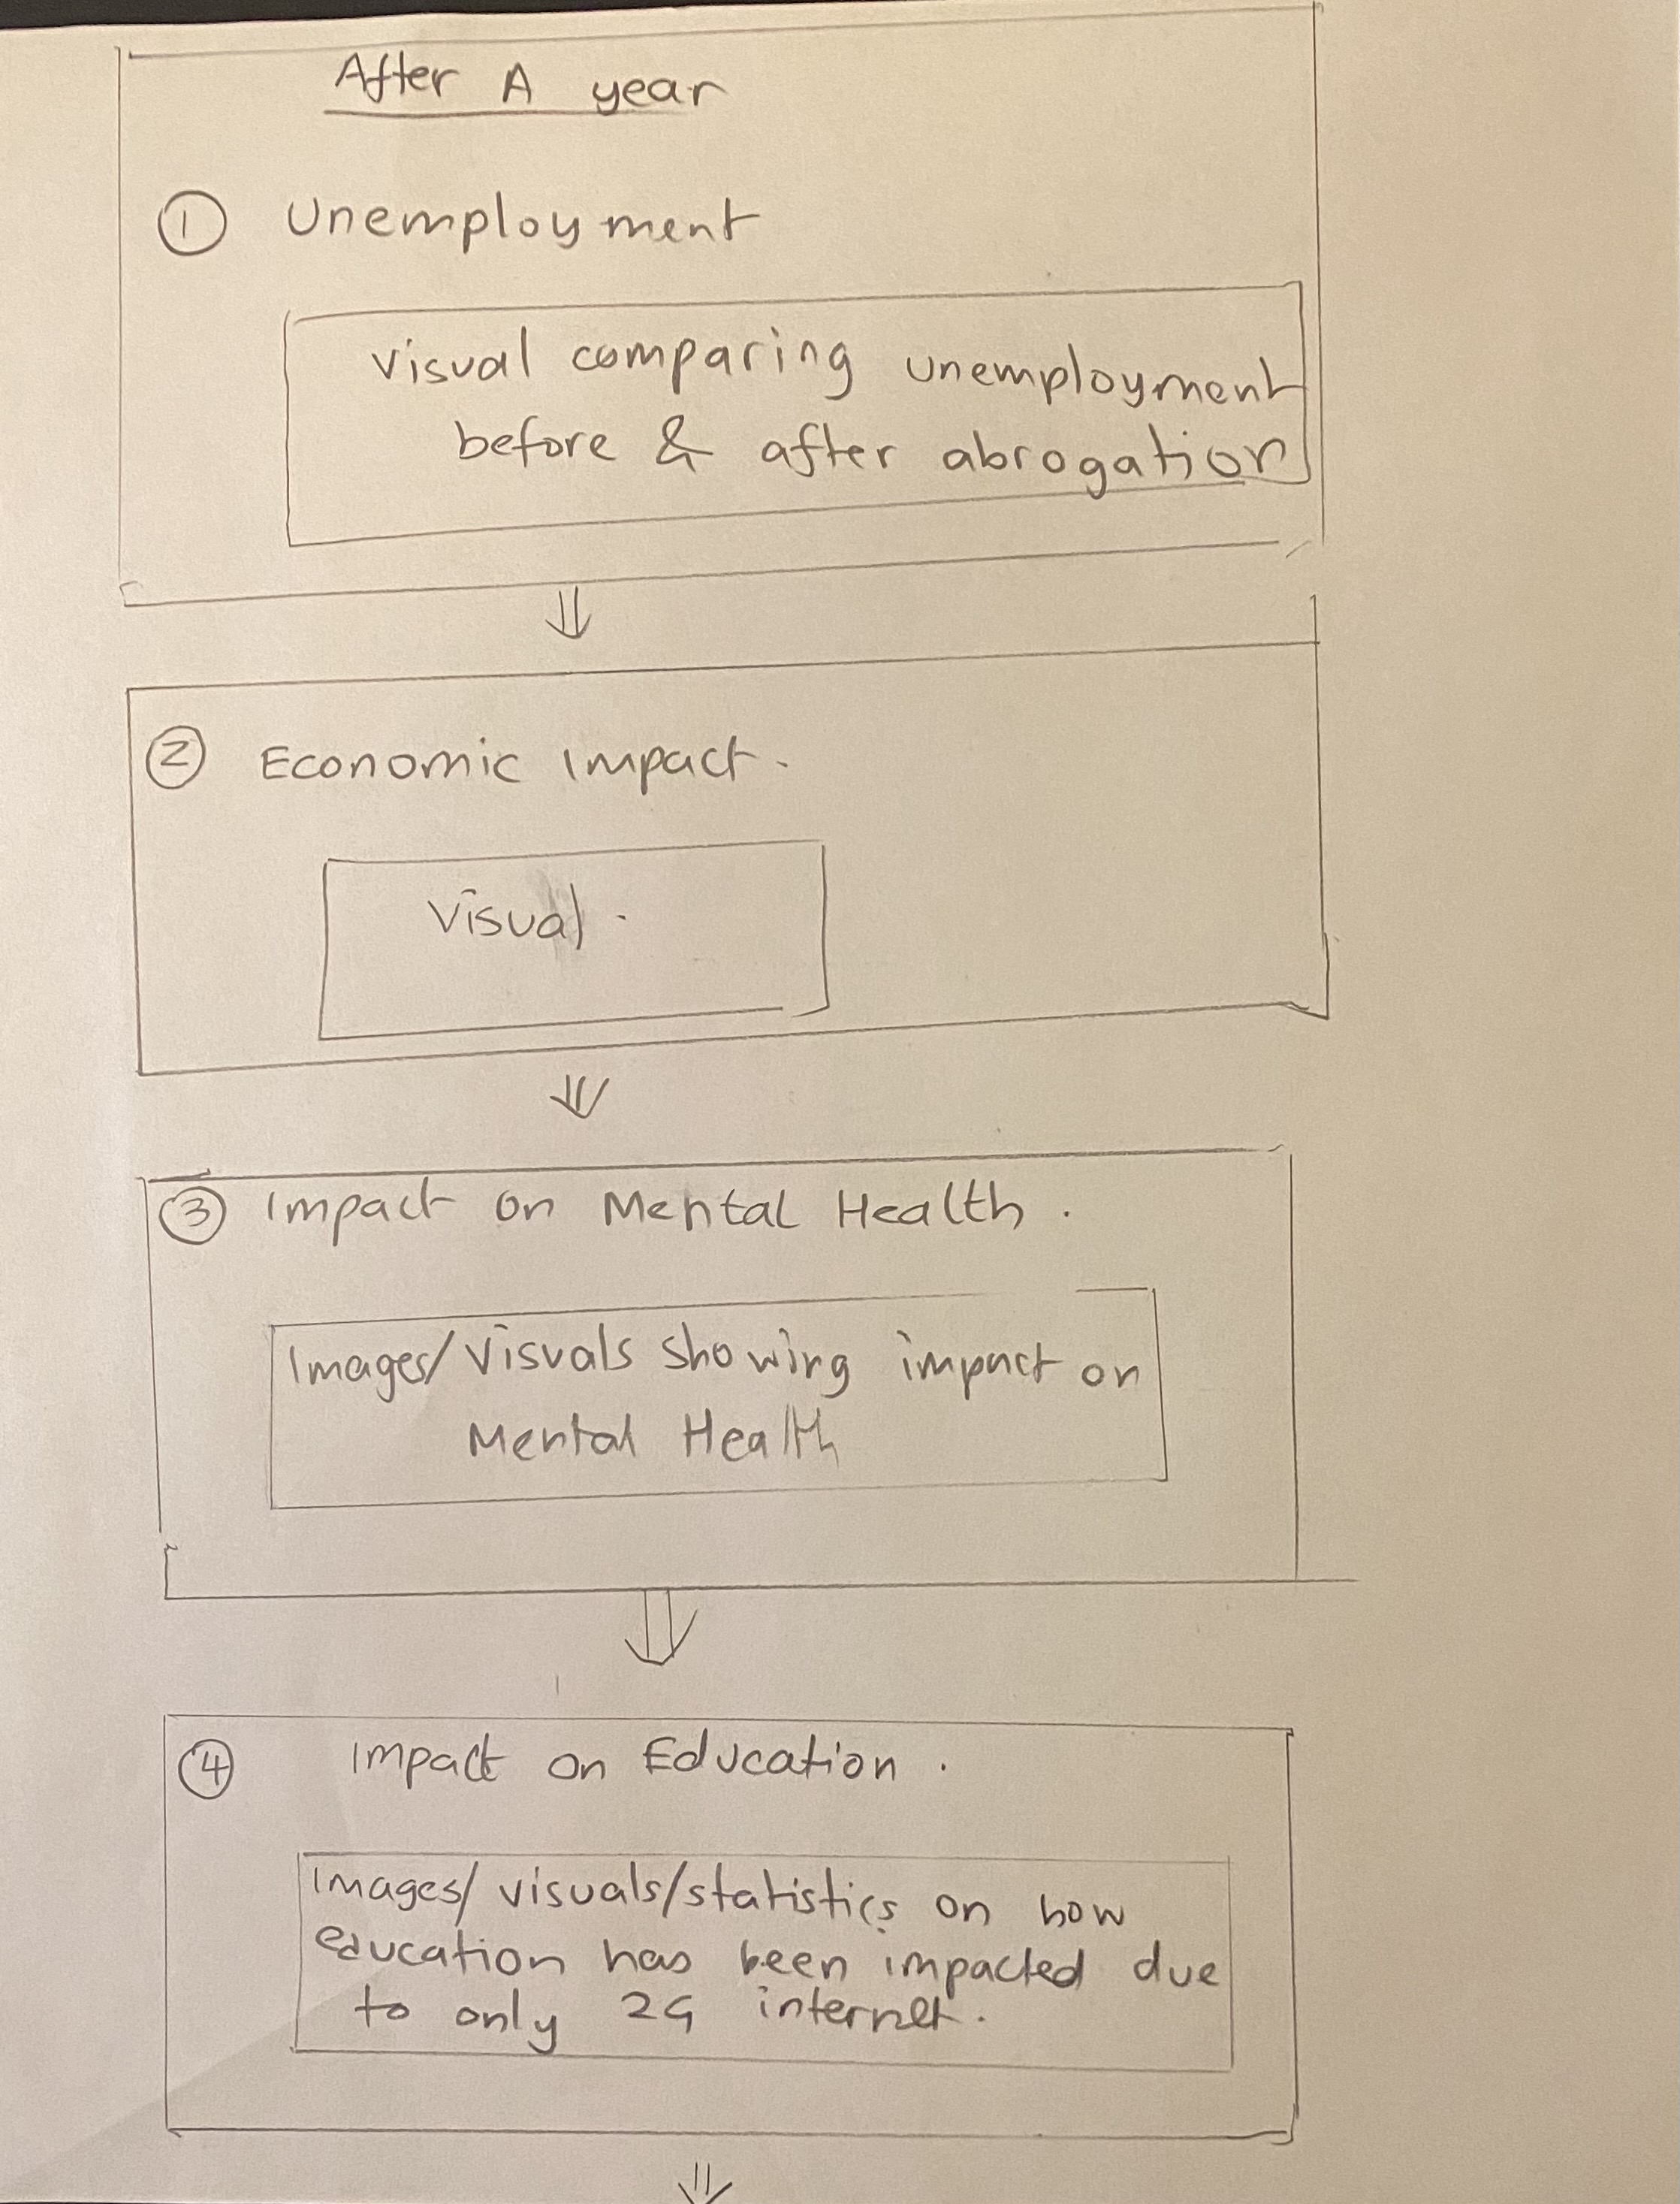 After A year
① Unemployment
Visual comparing unemployment
before & after abrogation
② Economic Impact.
Visual.
③ Impact on Mental Health.
Images/Visuals showing impact on
Mental Health
④ Impact on Education.
Images/visuals/statistics on how
education has been impacted due
to only 2G internet.